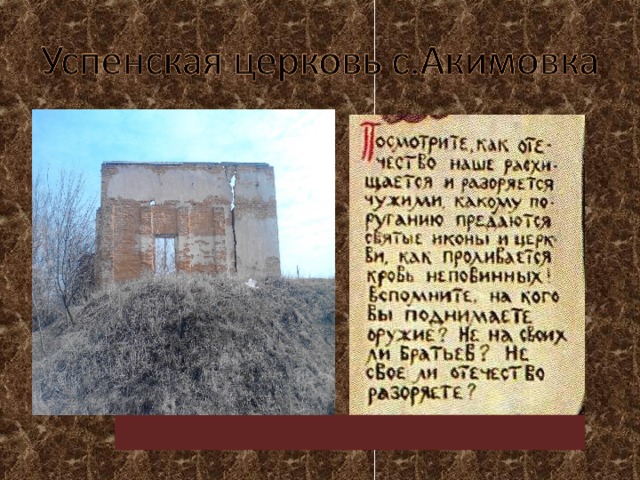 Успенская церковь с.Акимовка
Посмотрите, как оте-
чество наше расхи-
щается и разоряется
чужими, какому по-
руганию предаются
святые иконы и церк-
ви, как проливается
кровь неповинных!
Вспомните, на кого
вы поднимаете
оружие? Не на своих
ли братьев? Не
свое ли отечество
разоряете?